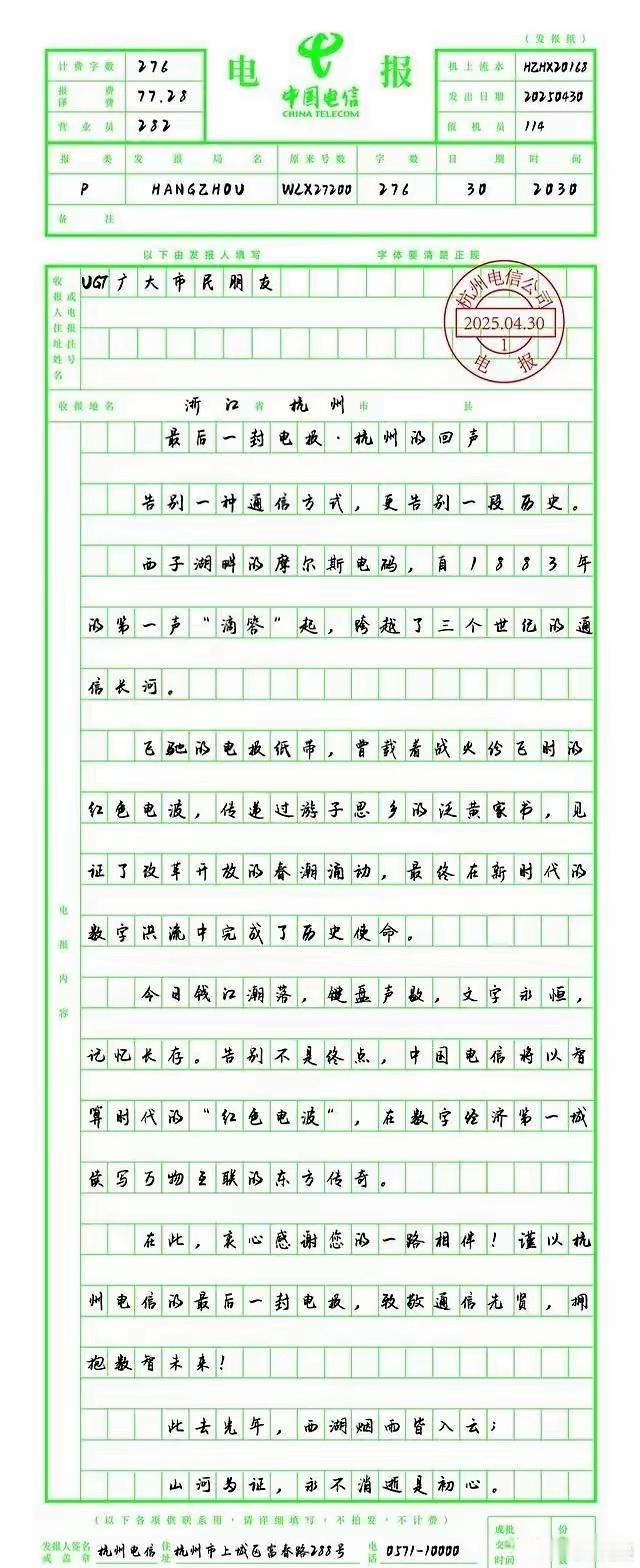 (发报纸)
计费字数 276
报费译费 77.28
营业员 282
电报
中国电信
CHINA TELECOM
机上流水 HZHX20168
发出日期 20250430
值机员 114
报类 发报局名 原来号数 字数 日期 时间
P HANGZHOU WLX27200 276 30 2030
备注
以下由发报人填写 字体要清楚正规
收报人住址姓名
或电报挂号
UGT广大市民朋友
杭州电信公司
2025.04.30
1
电报
收报地名 浙江省 杭州市 县
电报内容
最后一封电报·杭州的回声
告别一种通信方式,更告别一段历史。
西子湖畔的摩尔斯电码,自1883年
的第一声“滴答”起,跨越了三个世纪的通
信长河。
飞驰的电报纸带,曾载着战火纷飞时的
红色电波,传递过游子思乡的泛黄家书,见
证了改革开放的春潮涌动,最终在新时代的
数字洪流中完成了历史使命。
今日钱江潮落,键盘声歇,文字永恒,
记忆长存。告别不是终点,中国电信将以智
算时代的“红色电波”,在数字经济第一城
续写万物互联的东方传奇。
在此,衷心感谢您的一路相伴!谨以杭
州电信的最后一封电报,致敬通信先贤,拥
抱数智未来!
此去光年,西湖烟雨皆入云;
山河为证,永不消逝是初心。
(以下各项供联系用,请详细填写,不拍发,不计费)
发报人签名或盖章 杭州电信 住址 杭州市上城区富春路288号 电话 0571-10000
或批交编时间 份